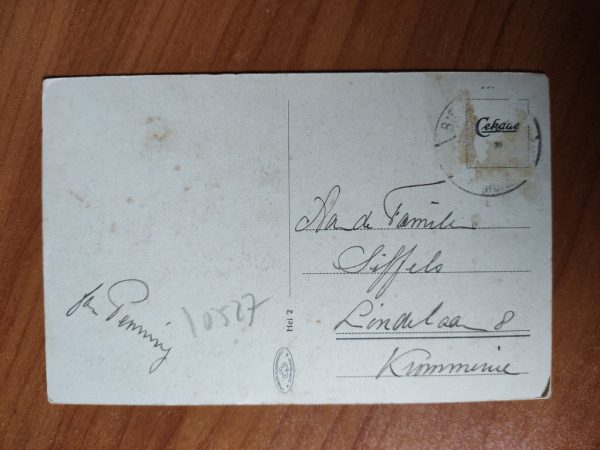 Cekade
36
Aan de Familie
Siffels
Lindelaan 8
Krommenie
Jan Penning
10527
Hei 2